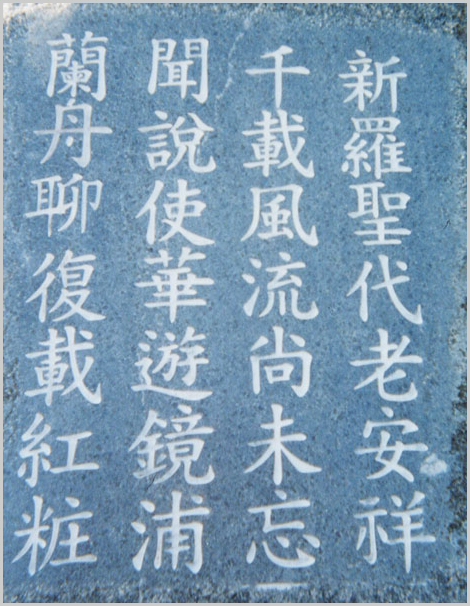 新羅聖代老安祥
千載風流尚未忘
聞說使華遊鏡浦
蘭舟聊復載紅粧